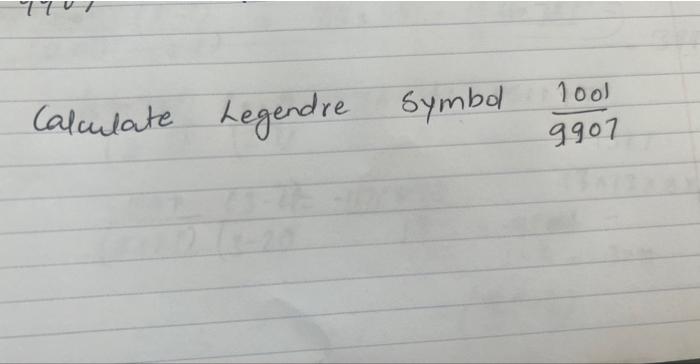 Calculate Legendre Symbol 1001/9907